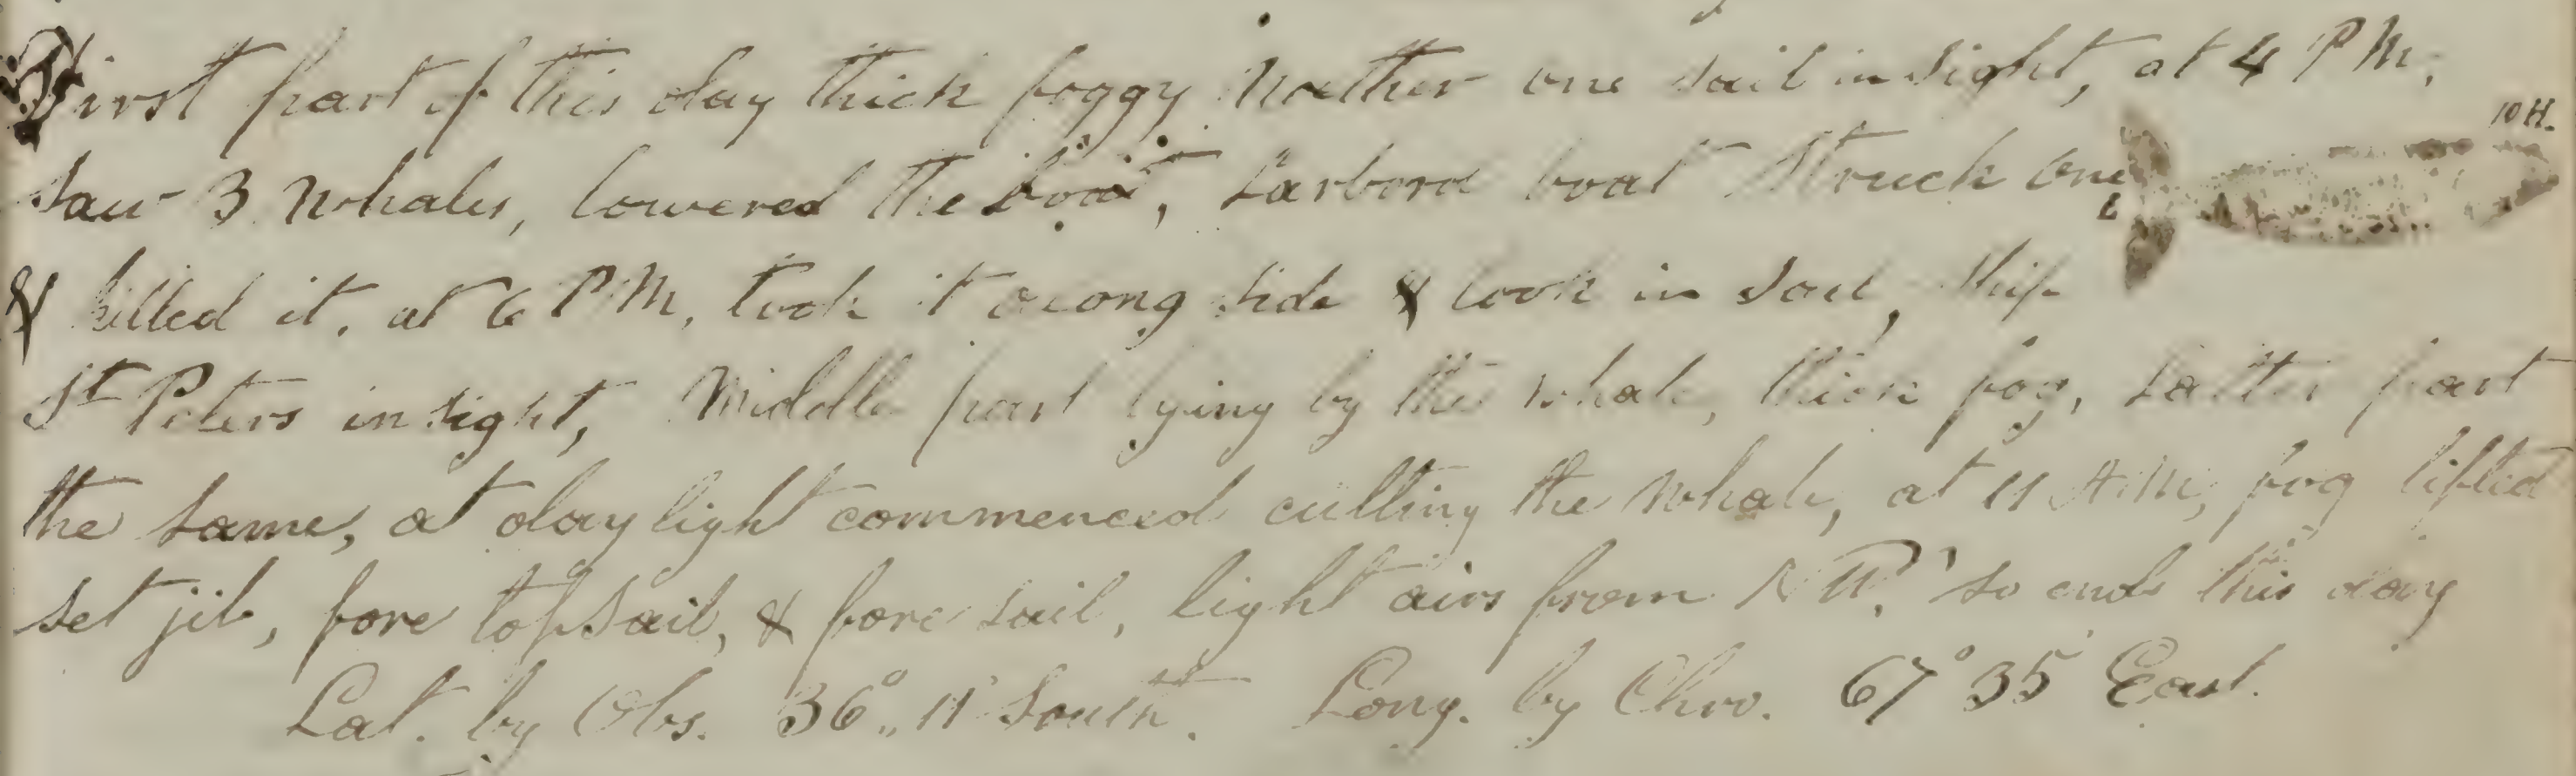 First part of this day thick foggy weather one sail in sight, at 4 P M,
Saw 3 whales, lowered the boat, Larbord boat Struck one
10 H.
& killed it, at 6 P M, took it along side & took in Sail, Ship
St Peters in sight, Middle part lying by the whale, thick fog, Latter part
the same, at daylight commenced cutting the whale, at 11 A M, fog lifted
set jib, fore topsail, & fore sail, light airs from N W, so ends this day
Lat. by Obs. 36° 11' South. Long. by Chro. 67° 35 East.